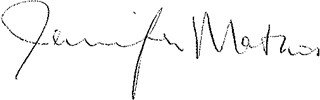 Jennifer Mathis